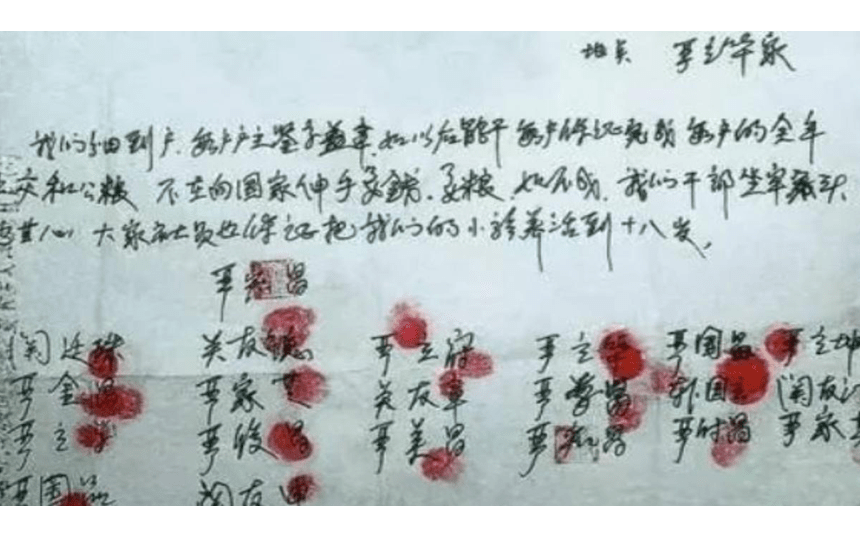 地点 严立华家
我们分田到户,每户户主签字盖章,如以后能干,每户保证完成每户的全年
上交和公粮,不在向国家伸手要钱要粮,如不成,我们干部坐牢杀头
也甘心,大家社员也保证把我们的小孩养活到十八岁。
严宏昌
关廷珠 关友德 严立符 严立华 严国昌 严立坤
严金昌 严家芝 关友章 严学昌 韩国云 关友江
严立学 严俊昌 严美昌 严付昌 严家其
严国品 关友申